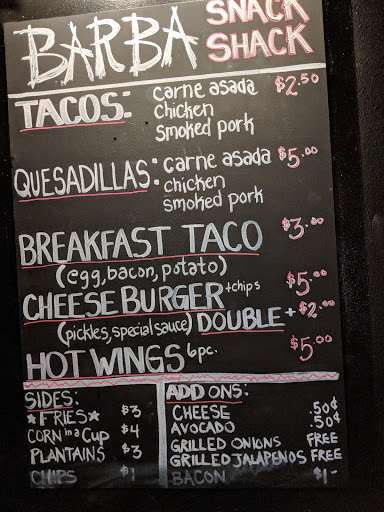 BARBA SNACK SHACK
TACOS: carne asada $2.50
chicken
smoked pork
QUESADILLAS: carne asada $5.00
chicken
smoked pork
BREAKFAST TACO $3.00
(egg, bacon, potato)
CHEESEBURGER +chips $5.00
(pickles, special sauce) DOUBLE +$2.00
HOT WINGS 6pc. $5.00
SIDES:
★FRIES★ $3
CORN in a Cup $4
PLANTAINS $3
CHIPS $1
ADD ONS:
CHEESE .50¢
AVOCADO .50¢
GRILLED ONIONS FREE
GRILLED JALAPENOS FREE
BACON $1-